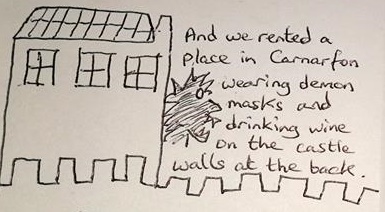 And we rented a
place in Carnarfon
wearing demon
masks and
drinking wine
on the castle
walls at the back.